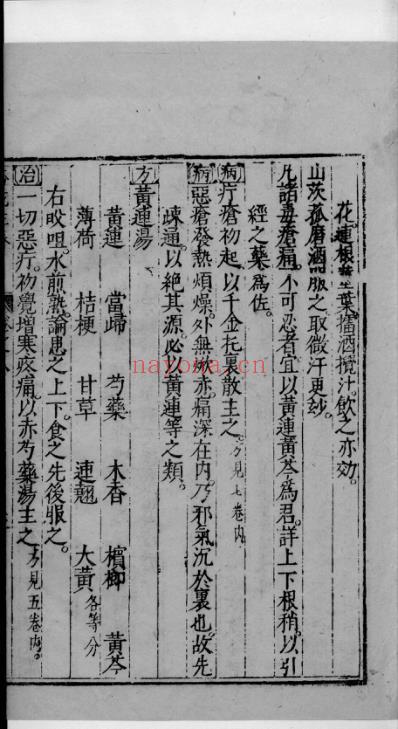 花連根莖葉擂酒攪汁飲之亦効。
山茨菰磨酒服之取微汗更妙。
凡諸毒瘡痛不可忍者宜以黄連黄芩為君詳上下根稍以引
經之藥為佐。
病疔瘡初起以千金托裏散主之。方見七卷内。
病惡瘡發熱煩燥。外無焮赤。痛深在内。乃邪氣沉於裏也。故先
疎通。以絶其源。必以黄連等之類。
方黄連湯
黄連 當歸 芍藥 木香 檳榔 黄芩
薄荷 桔梗 甘草 連翹 大黄各等分
右㕮咀。水煎熟。論患之上下。食之先後服之。
治一切惡疔。初覺增寒疼痛。以赤芍藥湯主之方見五卷内。
nayona.cn